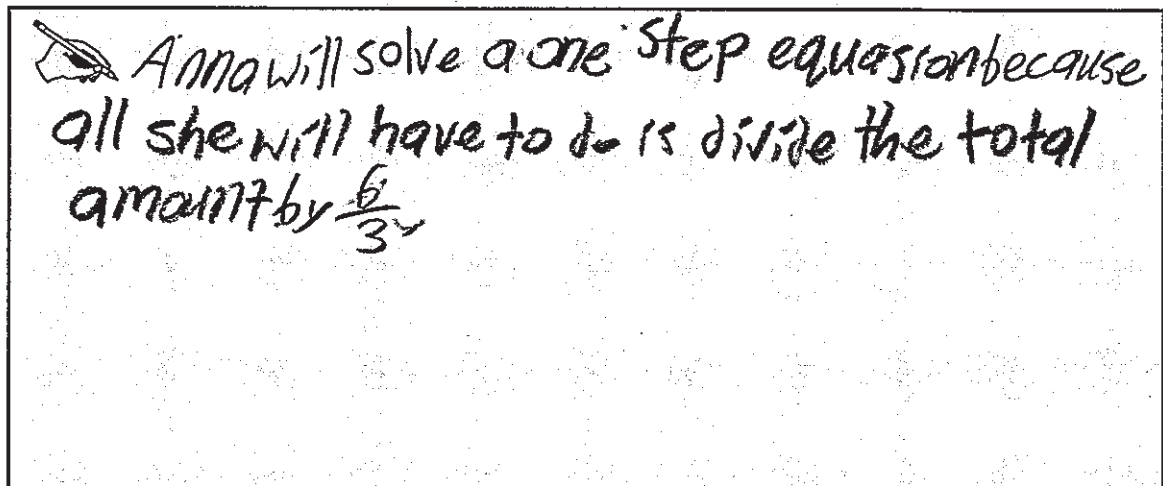 Anna will solve a one step equasion because
all she will have to do is divide the total
amount by 6/3